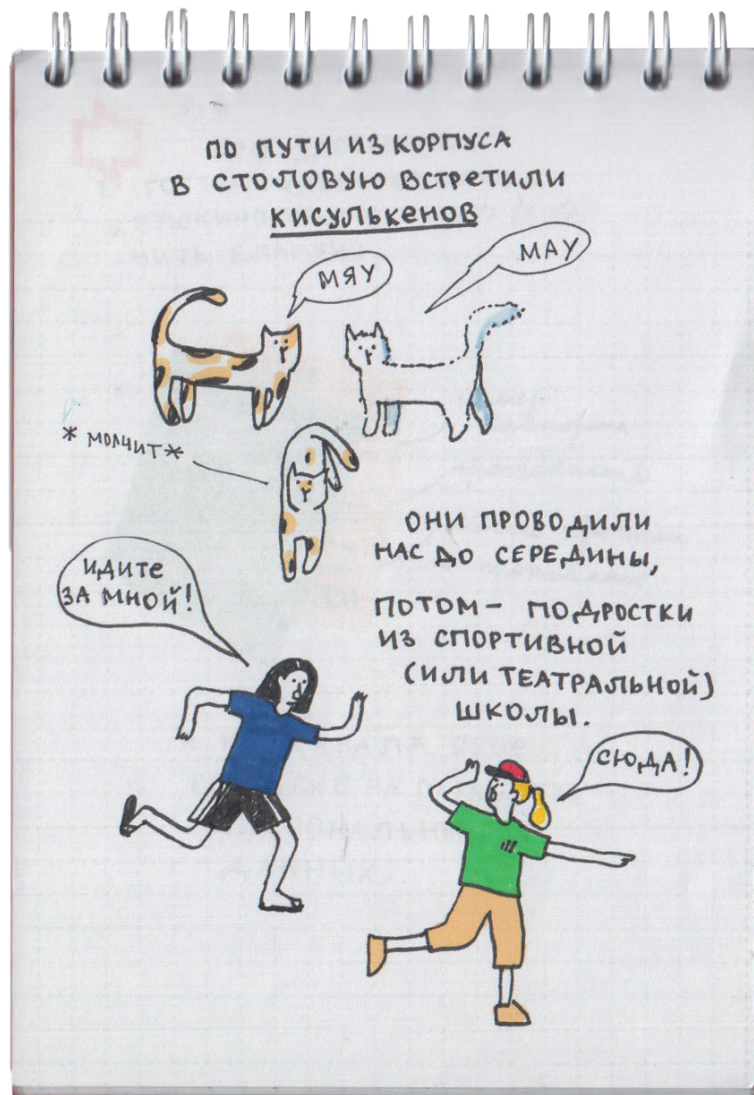 ПО ПУТИ ИЗ КОРПУСА
В СТОЛОВУЮ ВСТРЕТИЛИ
КИСУЛЬКЕНОВ
МЯУ
МАУ
*МОЛЧИТ*
ОНИ ПРОВОДИЛИ
НАС ДО СЕРЕДИНЫ,
ПОТОМ – ПОДРОСТКИ
ИЗ СПОРТИВНОЙ
(ИЛИ ТЕАТРАЛЬНОЙ)
ШКОЛЫ.
ИДИТЕ
ЗА МНОЙ!
СЮДА!